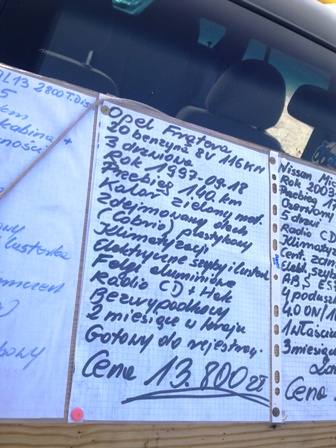 L13 2800 T.Dis
5
kabina +
Opel Frotera
20 benzyna 8V 116KM
3 drzwiowa
Rok 1997-09-18
Przebieg 140 km
Kolor zielony met.
Zdejmowany dach
(Cabrio) plastykowy
Klimatyzacji
Elektryczne szyby i lusterk
Felgi aluminiowe
Radio CD + Hak
Bezwypadkowy
2 miesiące w kraju
Gotowy do rejestracj.
Cena 13.800 zł
Nissan
Rok 200
Przebieg 17
Czerwony
5 drzwi
Radio CD
Klimatyz
Cent. zam
Elekt. szyb
ABS ES
4 podusz
4.00 N/1
1 właści
3 miesiące
Cena